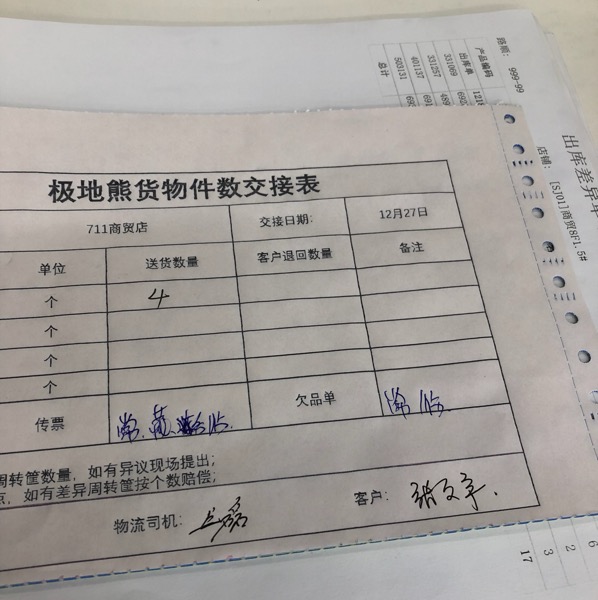 极地熊货物件数交接表
711商贸店 交接日期: 12月27日
单位 送货数量 客户退回数量 备注
个 4
个
个
个
传票 欠品单
周转筐数量，如有异议现场提出；
点，如有差异周转筐按个数赔偿；
物流司机： 客户：
路顺: 999-99
出库差异单
店铺: [SJ01]商贸8F1.5#
产品编码
出库单
331069
331257
401137
503131
总计
2
6
3
17